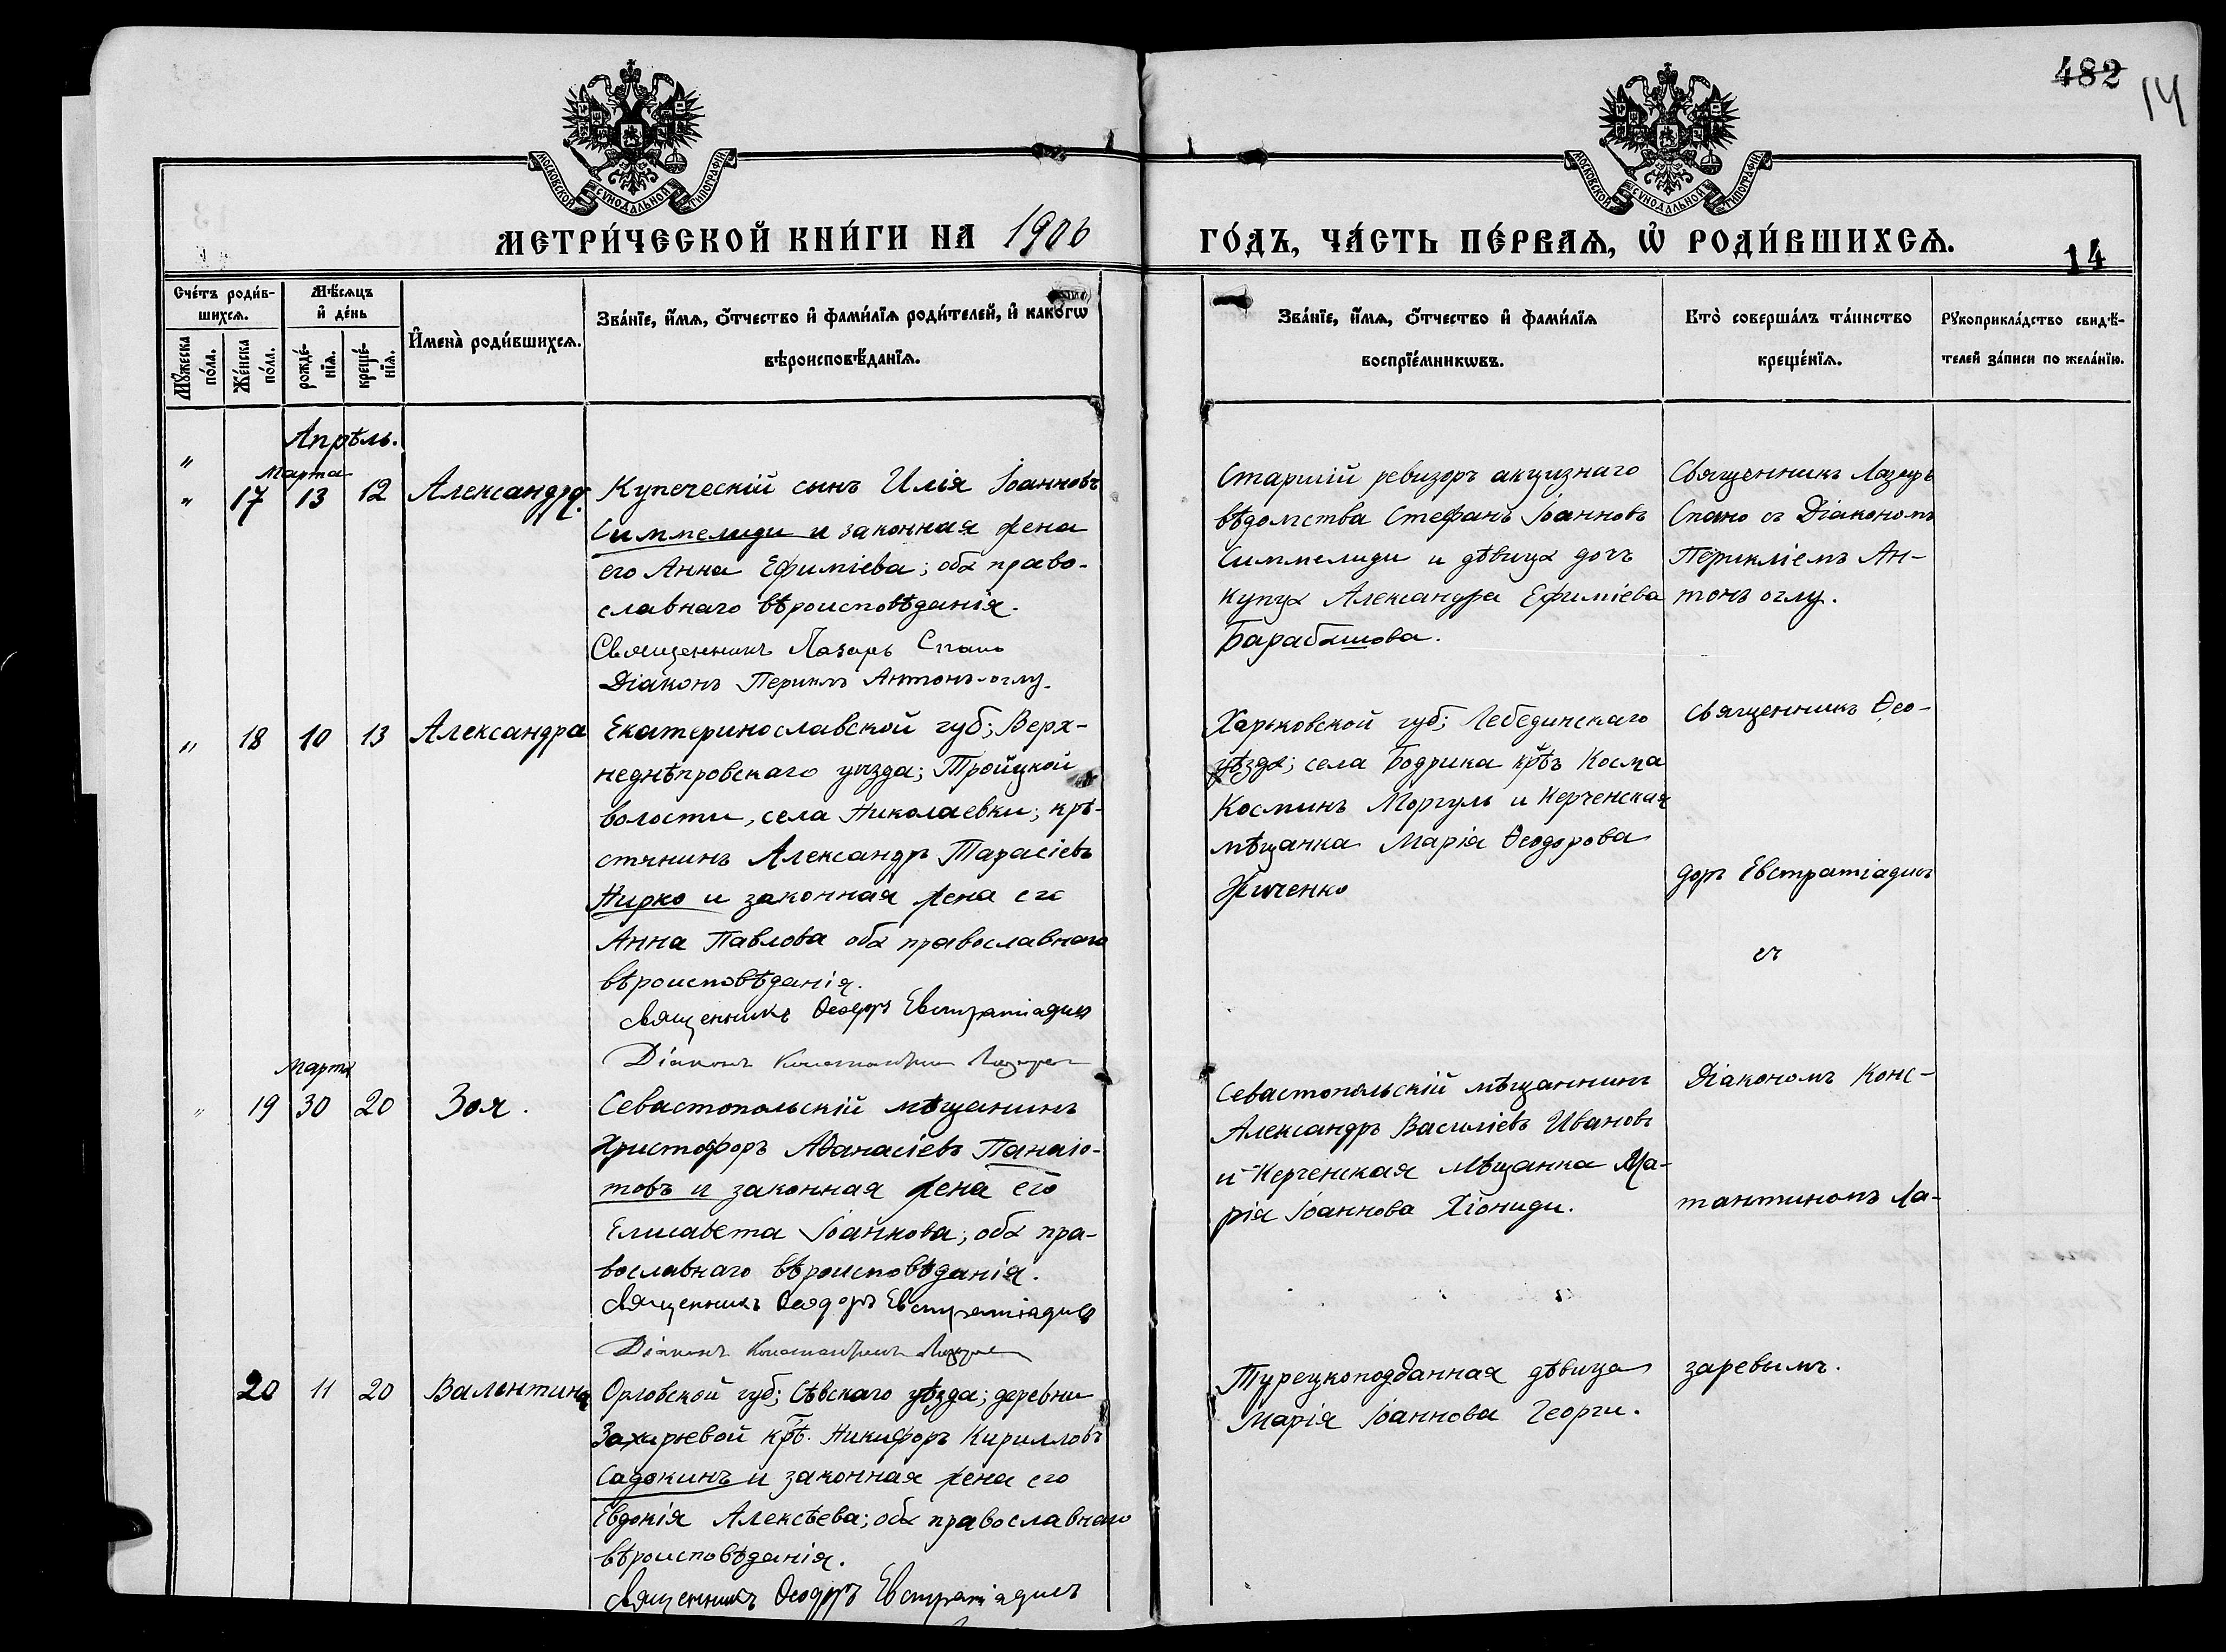 482
14
МОСКОВСКОЙ СѴНОДАЛЬНОЙ ТИПОГРАФІИ
МОСКОВСКОЙ СѴНОДАЛЬНОЙ ТИПОГРАФІИ
МЕТРИ́ЧЕСКОЙ КНИ́ГИ НА 1906 ГО́ДЪ, ЧА́СТЬ ПЕ́РВАЯ, Ѡ҆ РОДИ́ВШИХСѦ.
14
Сче́тъ роди́в-
шихсѧ.
Мꙋ́жеска
по́ла.
Же́нска
по́ла.
Мѣ́сѧцъ
и҆ де́нь
рожде́-
нїѧ.
креще́-
нїѧ.
И҆мена̀ роди́вшихсѧ.
Зва́нїе, и҆́мѧ, ѻ҆́тчество и҆ фами́лїѧ роди́телей, и҆ како́гѡ
вѣроисповѣ́данїѧ.
Зва́нїе, и҆́мѧ, ѻ҆́тчество и҆ фами́лїѧ
воспрїе́мникѡвъ.
Кто̀ соверша́лъ та́инство
креще́нїѧ.
Рꙋкоприкла́дство свидѣ́-
телей за́писи по жела́нїю.
Апрѣль.
"
Марта
" 17 13 12 Александра.
Купеческій сынъ Илія Іоанновъ
Симмелиди и законная жена
его Анна Ефиміева; оба право-
славнаго вѣроисповѣданія.
Священникъ Лазарь Спано
Діаконъ Периклъ Антонъ-оглу.
Старшій ревизоръ акцизнаго
вѣдомства Стефанъ Іоанновъ
Симмелиди и дѣвица дочь
купца Александра Ефиміева
Барабашова.
Священникъ Лазарь
Спано съ Діакономъ
Перикліемъ Ан-
тонъ оглу.
" 18 10 13 Александра
Екатеринославской губ; Верх-
неднѣпровскаго уѣзда; Тройцкой
волости, села Николаевки; кре-
стянинъ Александръ Тарасіевъ
Нирко и законная жена его
Анна Павлова оба православнаго
вѣроисповѣданія.
Священникъ Ѳеодоръ Евстратіадисъ
Діаконъ Константинъ Лазарев
Харьковской губ; Лебединскаго
уѣзда; села Бодрика крѣ Косма
Косминъ Моргуль и Керченская
мѣщанка Марія Ѳеодорова
священникъ Ѳео-
доръ Евстратіадисъ
съ
Марта
" 19 30 20 Зоя.
Севастопольскій мѣщанинъ
Христофоръ Аѳанасіевъ Панаіо-
товъ и законная жена его
Елисавета Іоаннова; оба пра-
вославнаго вѣроисповѣданія.
Священникъ Ѳеодоръ Евстратіадисъ
Діаконъ Константинъ Лазарев
Севастопольскій мѣщанинъ
Александръ Василіевъ Ивановъ
и Керченская мѣщанка Ма-
рія Іоаннова Хіониди.
Діакономъ Конс-
тантиномъ Ла-
20 11 20 Валентина
Орловской губ; Сѣвскаго уѣзда; деревни
Захарьевой крѣ. Никифоръ Кирилловъ
Садокинъ и законная жена его
Евдокія Алексѣева; оба православнаго
вѣроисповѣданія.
Священникъ Ѳеодоръ Евстратіадисъ
Турецкоподданная дѣвица
Марія Іоаннова Георги.
заревымъ.